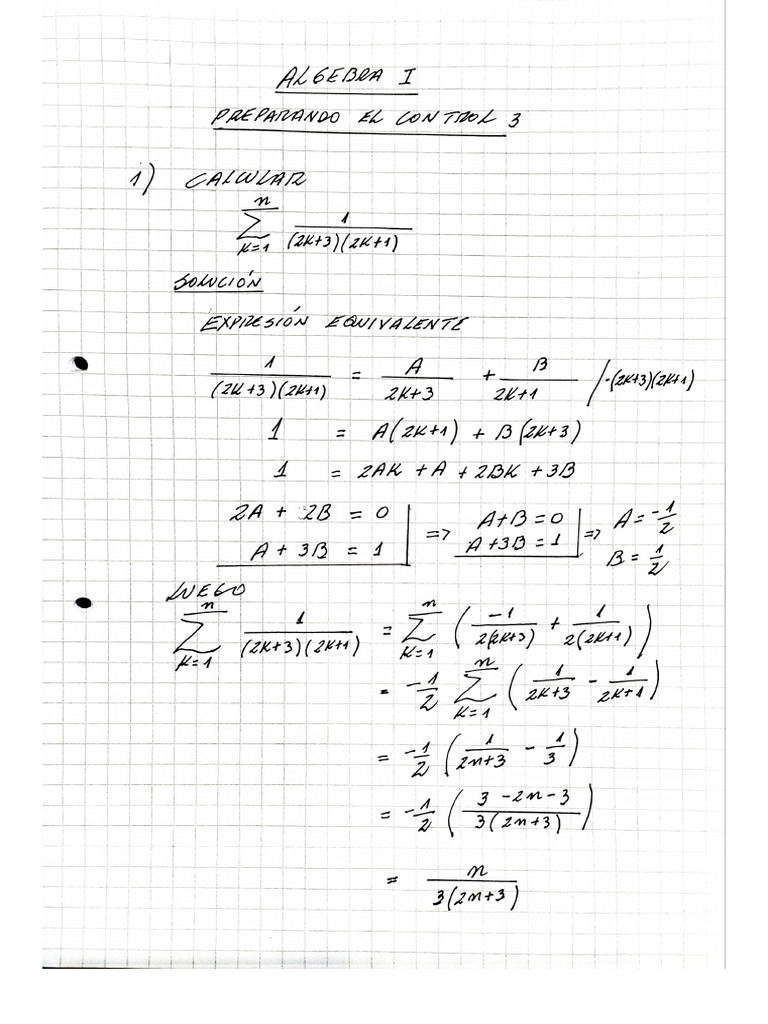 ALGEBRA I
PREPARANDO EL CONTROL 3
1) CALCULAR
\sum_{k=1}^{n} \frac{1}{(2k+3)(2k+1)}
SOLUCIÓN
EXPRESIÓN EQUIVALENTE
\frac{1}{(2k+3)(2k+1)} = \frac{A}{2k+3} + \frac{B}{2k+1} / \cdot (2k+3)(2k+1)
1 = A(2k+1) + B(2k+3)
1 = 2Ak + A + 2Bk + 3B
2A + 2B = 0 | => A+B=0 | => A = -\frac{1}{2}
A + 3B = 1 | A+3B=1 | B = \frac{1}{2}
LUEGO
\sum_{k=1}^{n} \frac{1}{(2k+3)(2k+1)} = \sum_{k=1}^{n} ( \frac{-1}{2(2k+3)} + \frac{1}{2(2k+1)} )
= -\frac{1}{2} \sum_{k=1}^{n} ( \frac{1}{2k+3} - \frac{1}{2k+1} )
= -\frac{1}{2} ( \frac{1}{2n+3} - \frac{1}{3} )
= -\frac{1}{2} ( \frac{3-2n-3}{3(2n+3)} )
= \frac{n}{3(2n+3)}